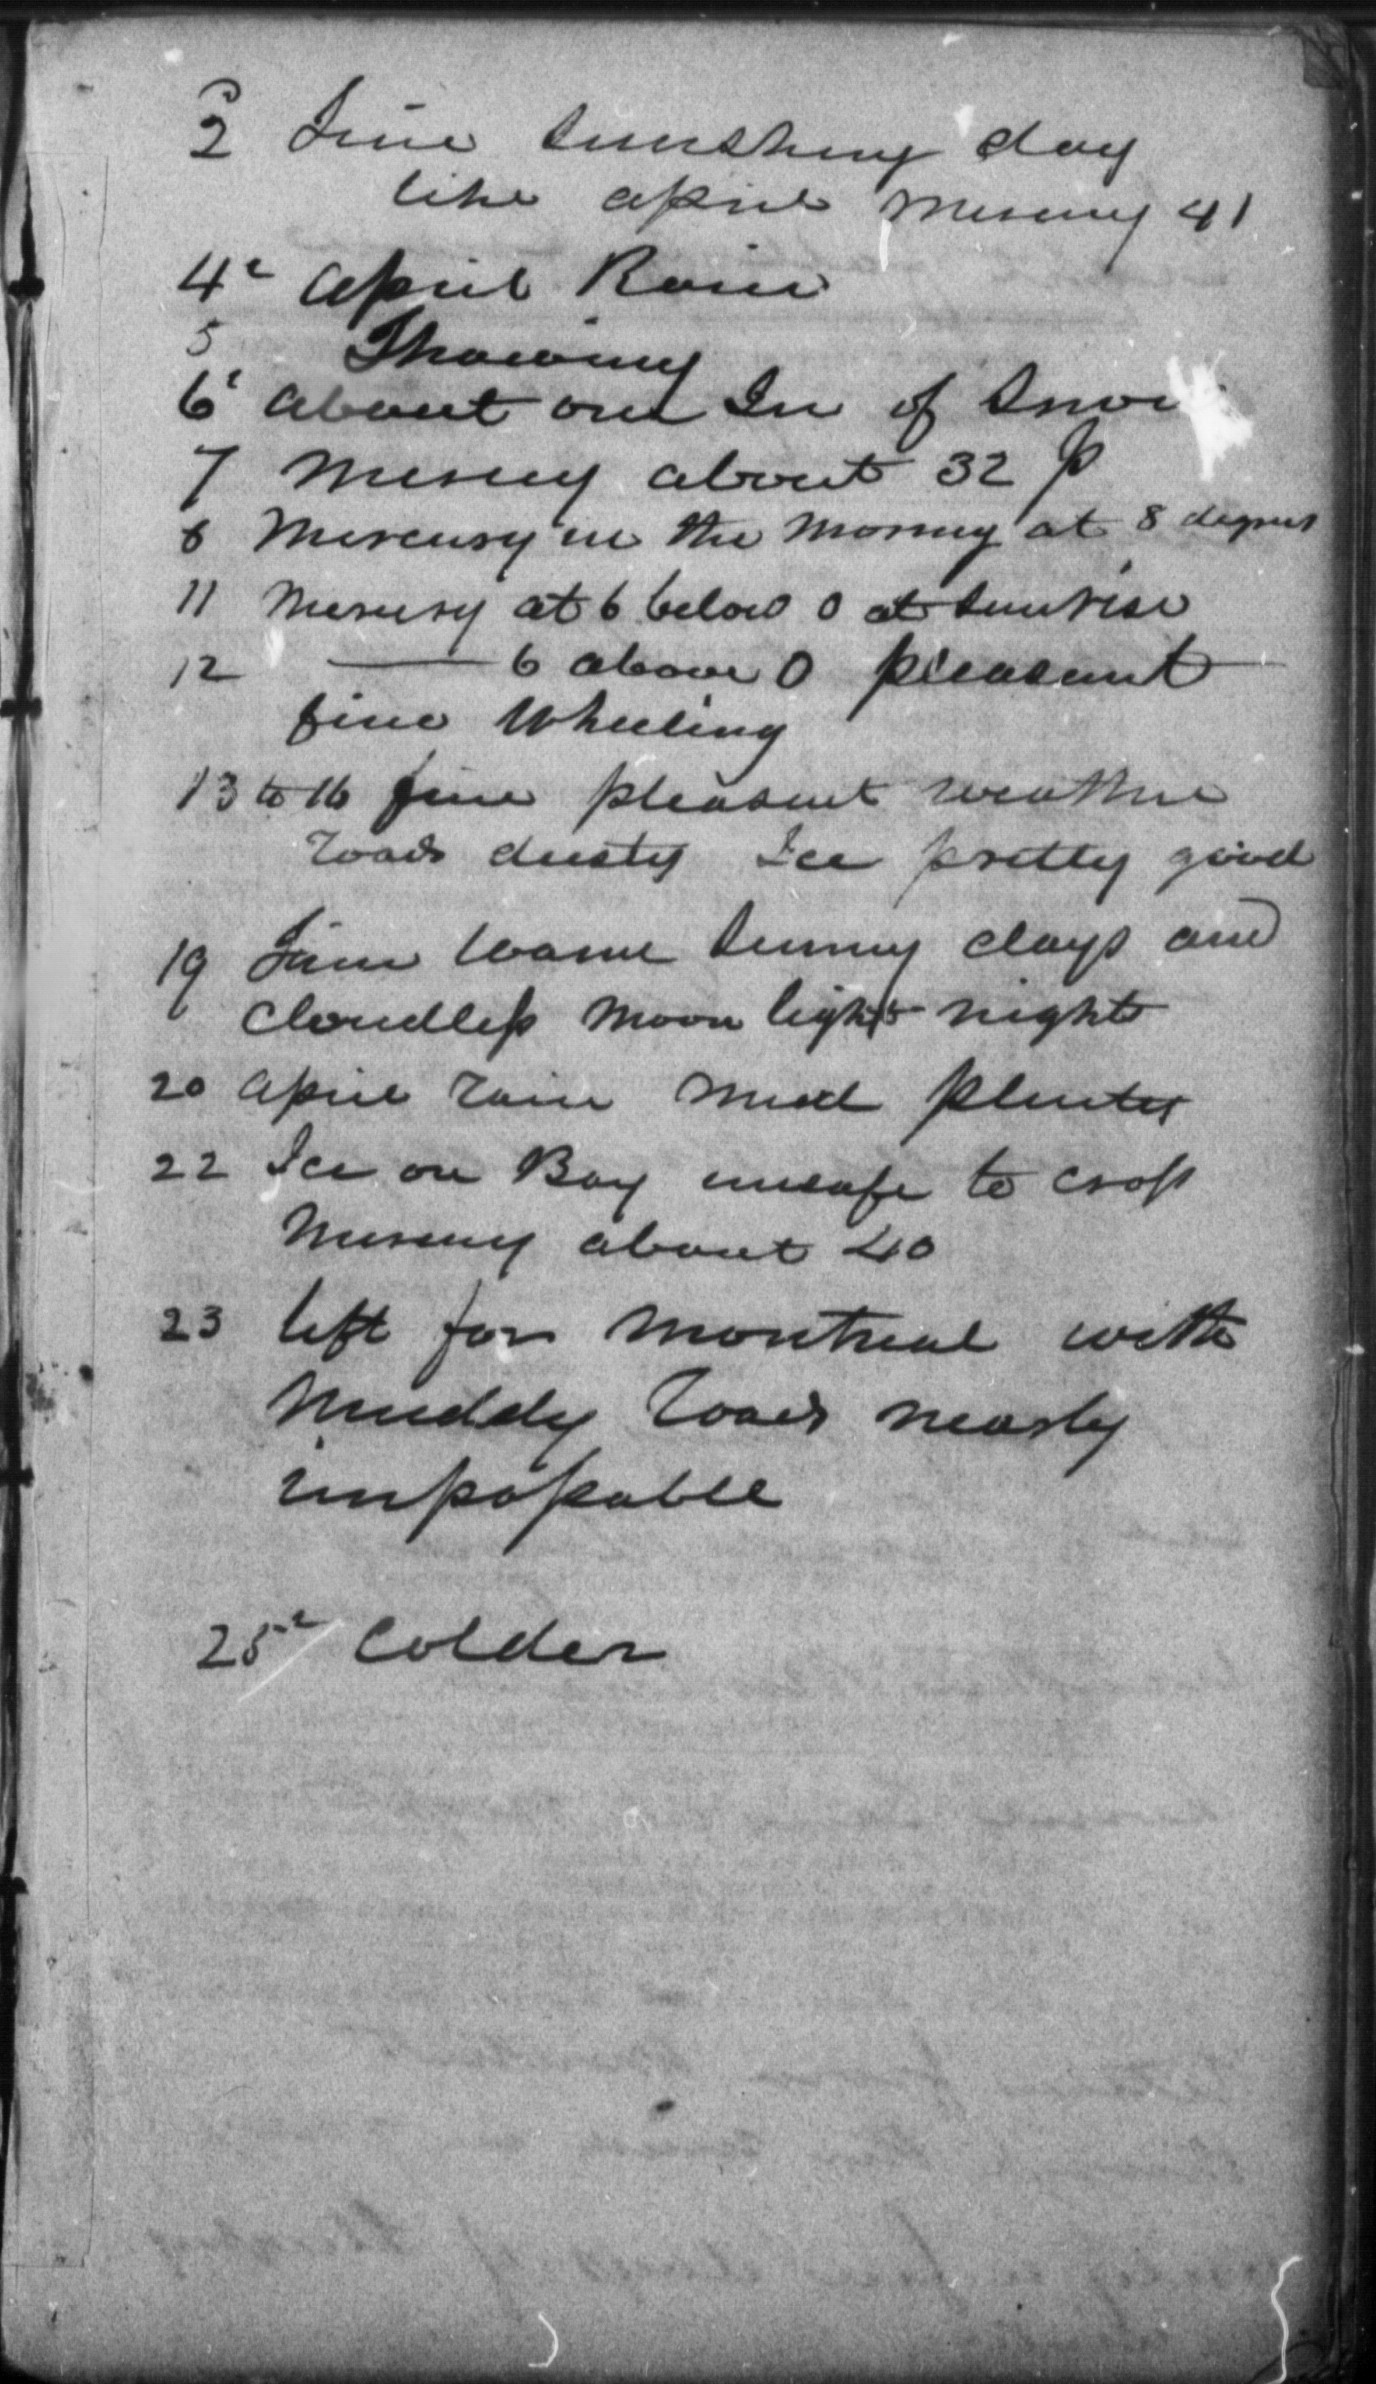 2 Fine sunshiny day
like april Mercury 41
4 April Rain
5 Thawing
6 about one In of Snow
7 Mercury about 32
8 Mercury in the Morning at 8 degrees
11 Mercury at 6 below 0 at sunrise
12 — 6 above 0 pleasant
fine Wheeling
13 to 16 fine pleasant weather
roads dusty Ice pretty good
19 Fine warm sunny days and
cloudless moon light nights
20 April rain mud plenty
22 Ice on Bay unsafe to cross
Mercury about 40
23 left for Montreal with
Muddy roads nearly
impassable
25 Colder